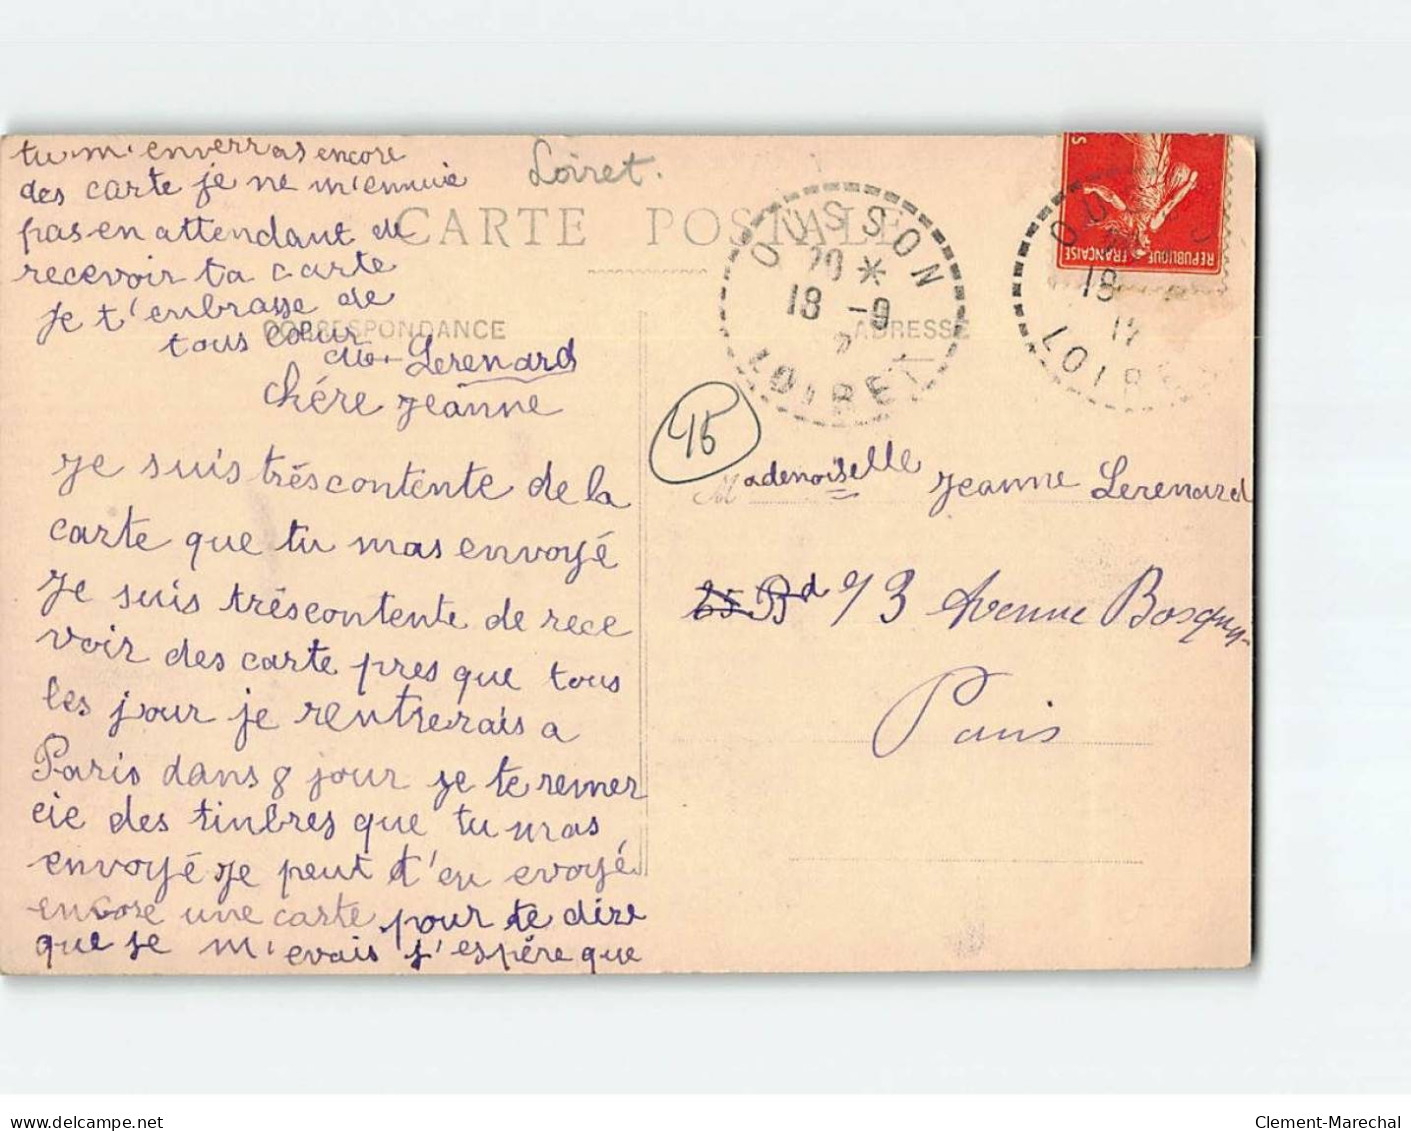 tu m'enverras encore
des carte je ne m'ennuie
pas en attendant de
recevoir ta carte
je t'enbrasse de
tous cœur
Lerenard
Loiret.
CARTE POSTALE
CORRESPONDANCE
ADRESSE
chére jeanne
je suis trés contente de la
carte que tu mas envoyé
je suis trés contente de rece
voir des carte pres que tous
les jour je rentrerais a
Paris dans 8 jour je te remer
cie des tinbres que tu mas
envoyé je peut t'en evoyé
encore une carte pour te dire
que je m'evais j'espére que
OUSSON
20 *
18 -9
LOIRET
REPUBLIQUE FRANÇAISE
18
LOIR
45
Mademoiselle jeanne Lerenard
25 Bd 93 Avenue Bosquet
Paris
delcampe.net
Clement-Marechal